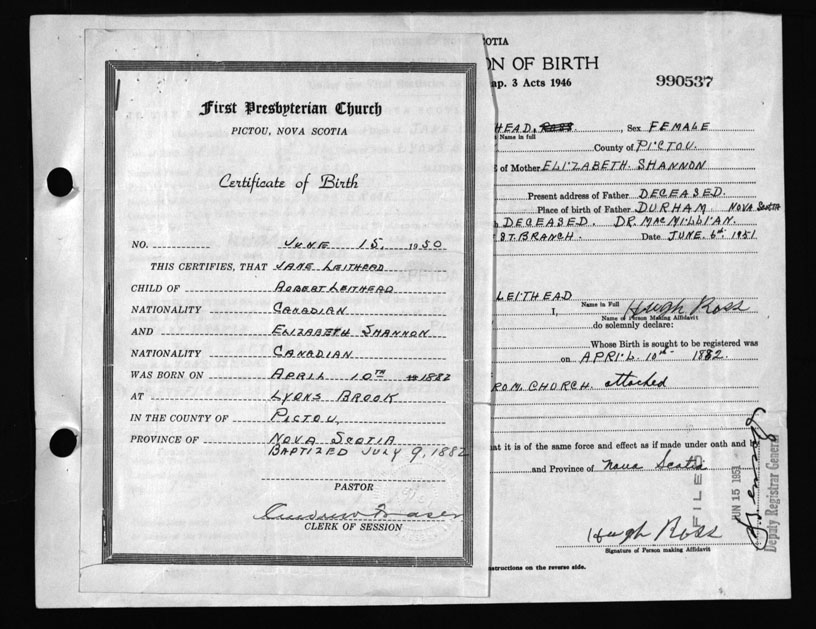 First Presbyterian Church
PICTOU, NOVA SCOTIA
Certificate of Birth
NO. JUNE 15, 1950
THIS CERTIFIES, THAT JANE LEITHEAD
CHILD OF ROBERT LEITHEAD
NATIONALITY CANADIAN
AND ELIZABETH SHANNON
NATIONALITY CANADIAN
WAS BORN ON APRIL 10TH 1882
AT LYONS BROOK
IN THE COUNTY OF PICTOU
PROVINCE OF NOVA SCOTIA
BAPTIZED JULY 9, 1882
PASTOR
Andrew Fraser
CLERK OF SESSION
SCOTIA
ON OF BIRTH
ap. 3 Acts 1946
990537
HEAD, ROSS, Sex FEMALE
Name in full
County of PICTOU
of Mother ELIZABETH SHANNON
Present address of Father DECEASED
Place of birth of Father DURHAM NOVA SCOTIA
DECEASED. DR. MACMILLIAN.
ST. BRANCH. Date JUNE 6th 1951
LEITHEAD
Name in Full
I, Hugh Ross
Name of Person Making Affidavit
do solemnly declare:
Whose Birth is sought to be registered was
on APRIL 10th 1882
ROM. CHURCH. attached
at it is of the same force and effect as if made under oath and
and Province of Nova Scotia
FILED
JUN 15 1951
Deputy Registrar General
Hugh Ross
Signature of Person making Affidavit
nstructions on the reverse side.